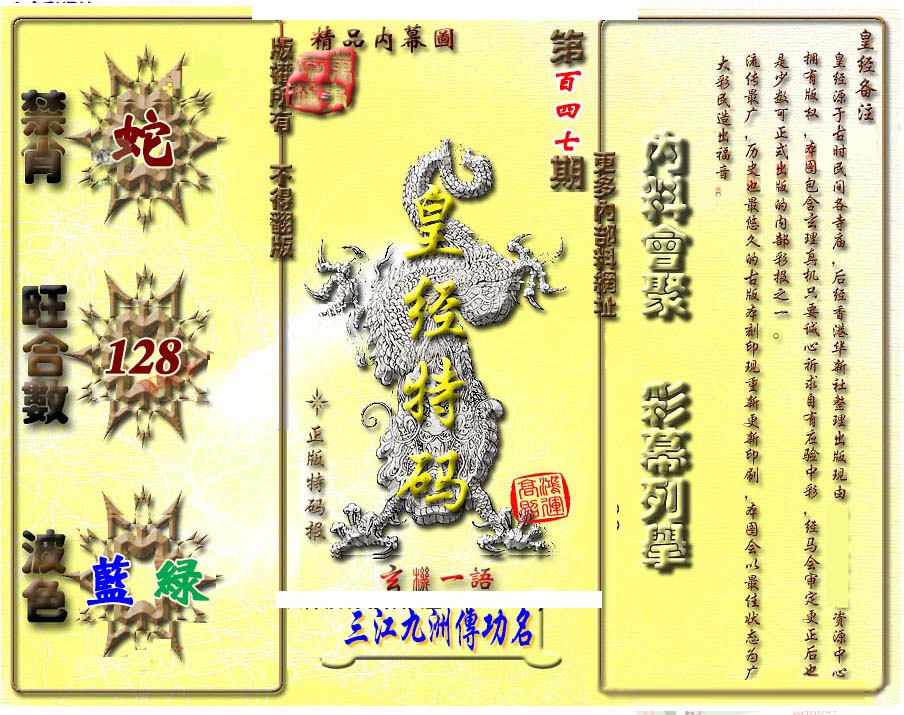 精品内幕圖
第百四七期
版權所有 不得翻版
更多內部料網址
禁肖
蛇
旺合數
128
波色
藍 緑
皇经特码
正版特码报
鴻運高照
玄機一語
三江九洲傳功名
内料會聚 彩幕列舉
皇经备注
皇经源于古时民间各寺庙,后经香港华新社整理出版现由 资源中心
拥有版权,本图包含玄理真机只要诚心祈求自有应验中彩,经马会审定更正后也
是少数可正式出版的内部彩报之一。
流传最广,历史也最悠久的古版本刻印现重新更新印刷,本图会以最佳状态为广
大彩民造出福音